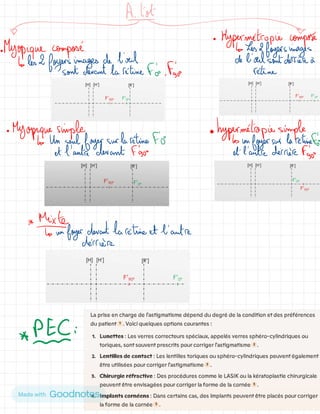 A. tot
• Myopique composé
↳ les 2 foyers images de l'œil
sont devant la rétine F'0° F'90°
[H] [H'] [R']
F'90° F'0°
• Hypermétropie composé
↳ Les 2 foyers images
de l'œil sont derrière la
rétine
[H] [H'] [R']
F'90° F'0°
• Myopique simple
↳ Un seul foyer sur la rétine F'0°
et l'autre devant F'90°
[H] [H'] [R']
F'90° F'0°
• hypermétropie simple
↳ un foyer sur la rétine F'0°
et l'autre derrière F'90°
[H] [H'] [R']
F'0°
F'90°
* Mixte
↳ un foyer devant la rétine et l'autre
derrière
[H] [H'] [R']
F'90° F'0°
* PEC :
La prise en charge de l'astigmatisme dépend du degré de la condition et des préférences
du patient. Voici quelques options courantes :
1. Lunettes : Les verres correcteurs spéciaux, appelés verres sphéro-cylindriques ou
toriques, sont souvent prescrits pour corriger l'astigmatisme.
2. Lentilles de contact : Les lentilles toriques ou sphéro-cylindriques peuvent également
être utilisées pour corriger l'astigmatisme.
3. Chirurgie réfractive : Des procédures comme le LASIK ou la kératoplastie chirurgicale
peuvent être envisagées pour corriger la forme de la cornée.
Implants cornéens : Dans certains cas, des implants peuvent être placés pour corriger
la forme de la cornée.
Made with Goodnotes